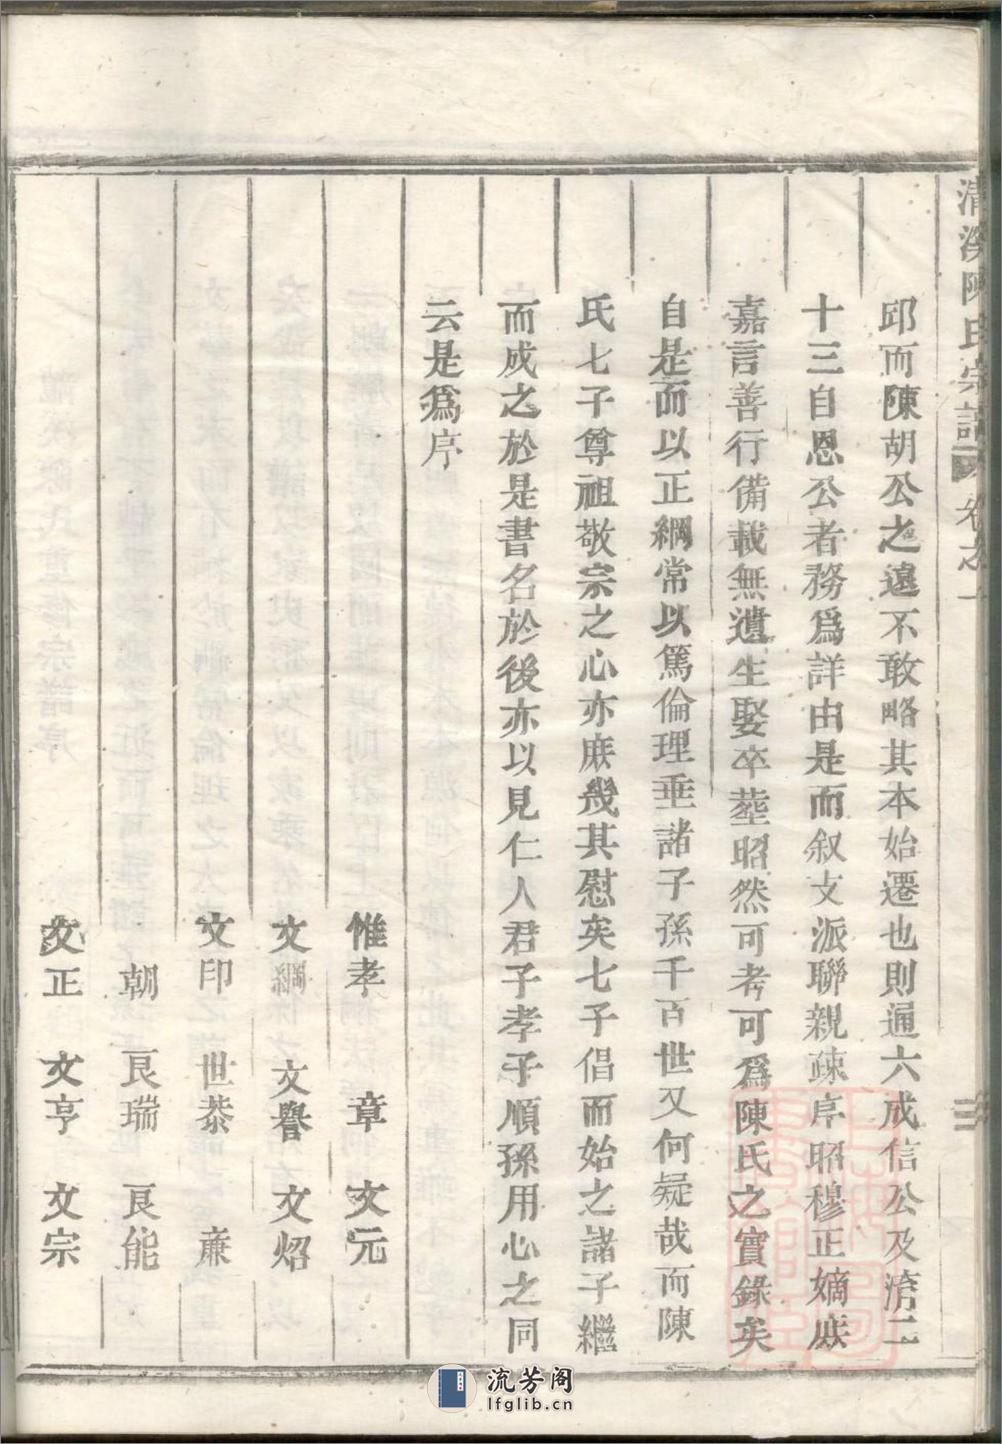 清溪陳氏宗譜 卷之一
三
邱而陳胡公之遠不敢略其本始遷也則通六成信公及淯二
十三自恩公者務爲詳由是而叙支派聯親疎序昭穆正嫡庶
嘉言善行備載無遺生娶卒塟昭然可考可爲陳氏之實錄矣
自是而以正綱常以篤倫理垂諸子孫千百世又何疑哉而陳
氏七子尊祖敬宗之心亦庶幾其慰矣七子倡而始之諸子繼
而成之於是書名於後亦以見仁人君子孝子順孫用心之同
云是爲序
惟孝 章 文元
文綱 文譽 文炤
文印 世恭 亷
朝 良瑞 良能
文正 文亨 文宗
流芳阁
lfglib.cn